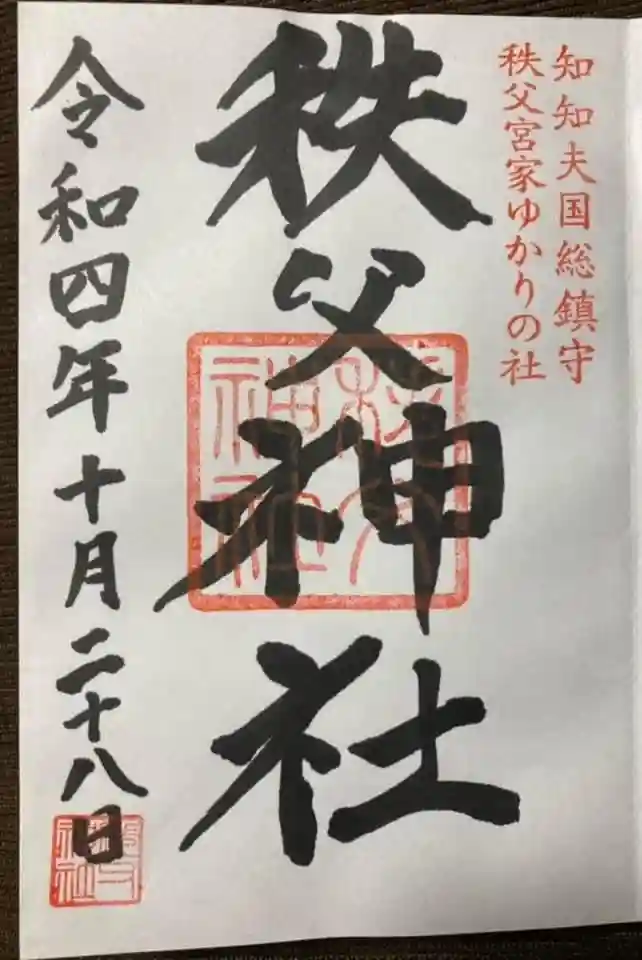 知知夫国総鎮守
秩父宮家ゆかりの社
秩父神社
秩父神社
令和四年十月二十八日